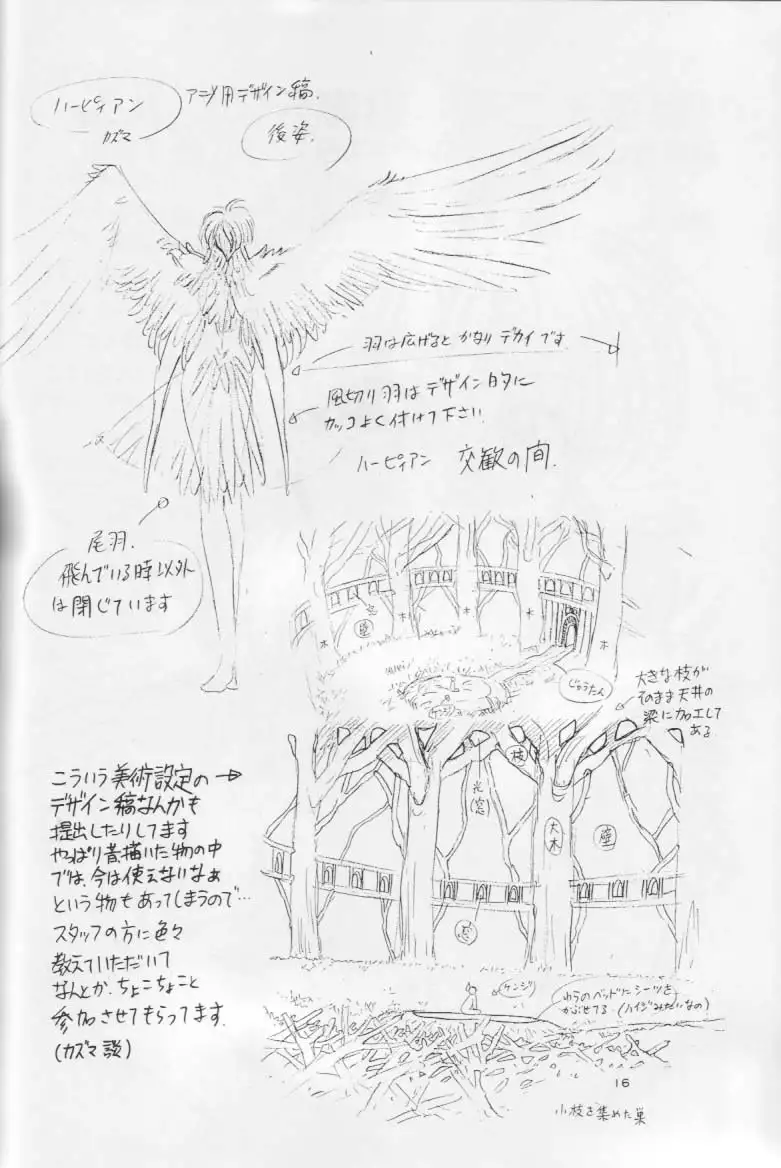 ハーピィアン
カズマ
アニメ用デザイン稿.
後姿.
羽は広げると かなり デカイ です
風切り羽はデザイン的に
カッコよく付けて下さい.
ハーピィアン 交歓の間.
尾羽.
飛んでいる時以外
は閉じています
窓
壁
木
木
木
木
ケンジ
じゅうたん
大きな枝が
そのまま天井の
梁に加工して
ある
枝
光
(窓)
大木
壁
窓
こういう美術設定の→
デザイン稿なんかも
提出したりしてます
やっぱり昔描いた物の中
では、今は使えないなぁ
という物もあってしまうので…
スタッフの方に色々
教えていただいて
なんとか、ちょこちょこと
参加させてもらってます.
(カズマ談)
ケンジ
わらのベッドにシーツを
かぶせてる (ハイジみたいなの)
16
小枝を集めた巣